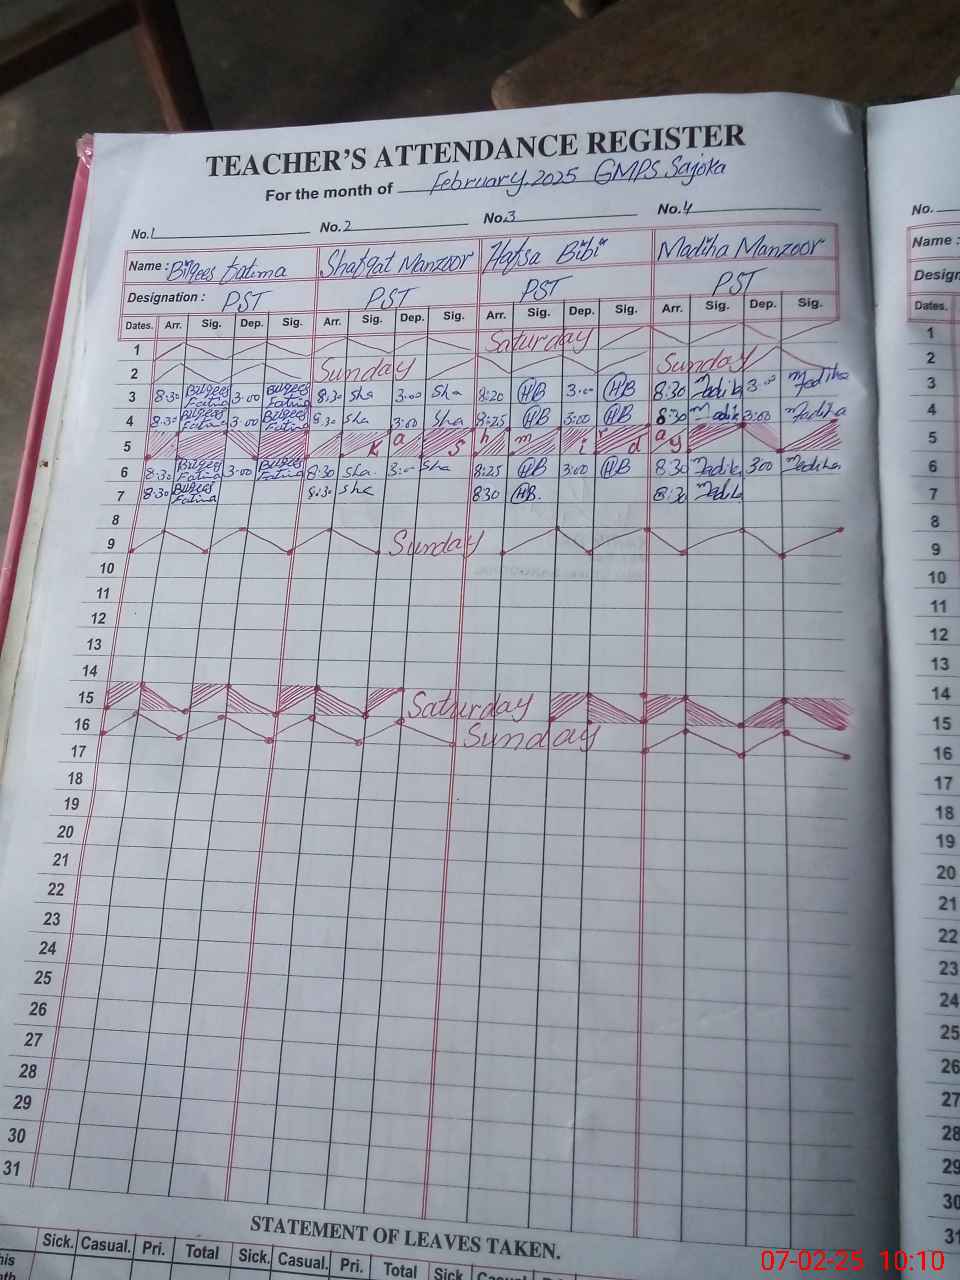 TEACHER'S ATTENDANCE REGISTER
For the month of February.2025 GMPS Sajoka
No.1 No.2 No.3 No.4 No.
Name : Bilqees Fatima Shafqat Manzoor Hafsa Bibi Madiha Manzoor Name :
Designation : PST PST PST PST Design
Dates. Arr. Sig. Dep. Sig. Arr. Sig. Dep. Sig. Arr. Sig. Dep. Sig. Arr. Sig. Dep. Sig. Dates.
1 Saturday 1
2 Sunday Sunday 2
3 8:30 Bilqees Fatima 3:00 Bilqees Fatima 8:30 Sha 3:00 Sha 8:20 HB 3:00 HB 8:30 Madiha 3:00 Madiha 3
4 8:30 Bilqees Fatima 3:00 Bilqees Fatima 8:30 Sha 3:00 Sha 8:25 HB 3:00 HB 8:30 Madiha 3:00 Madiha 4
5 K a s h m i r d a y 5
6 8:30 Bilqees Fatima 3:00 Bilqees Fatima 8:30 Sha. 3:00 Sha 8:25 HB 3:00 HB 8:30 Madiha 3:00 Madiha 6
7 8:30 Bilqees Fatima 8:30 Sha 8:30 HB. 8:30 Madiha 7
8 8
9 Sunday 9
10 10
11 11
12 12
13 13
14 14
15 Saturday 15
16 Sunday 16
17 17
18 18
19 19
20 20
21 21
22 22
23 23
24 24
25 25
26 26
27 27
28 28
29 29
30 30
31 31
STATEMENT OF LEAVES TAKEN.
Sick. Casual. Pri. Total Sick. Casual. Pri. Total Sick
07-02-25 10:10